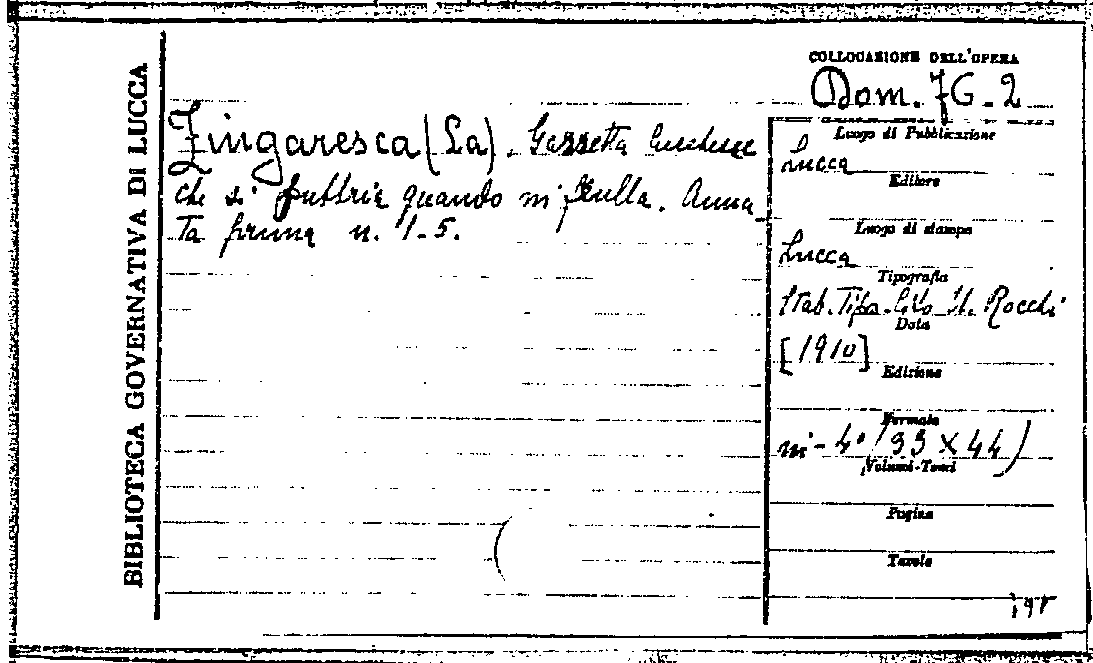 BIBLIOTECA GOVERNATIVA DI LUCCA
COLLOCAZIONE DELL'OPERA
Dom. 7G-2
Zingaresca (La). Gazzetta lucchese
che si pubblica quando mi frulla. Anna-
ta prima n. 1-5.
Luogo di Pubblicazione
Lucca
Editore
Luogo di stampa
Lucca
Tipografia
Stab. Tipo-Lito Rocchi
Data
[1910]
Edizione
Formato
in-4° (33 X 44)
Volumi-Tomi
Pagine
Tavole